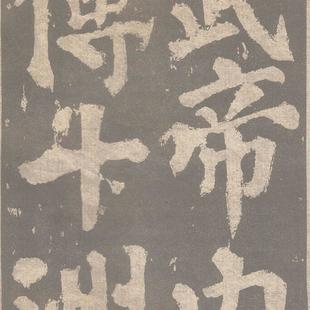 武帝内
傳十洲